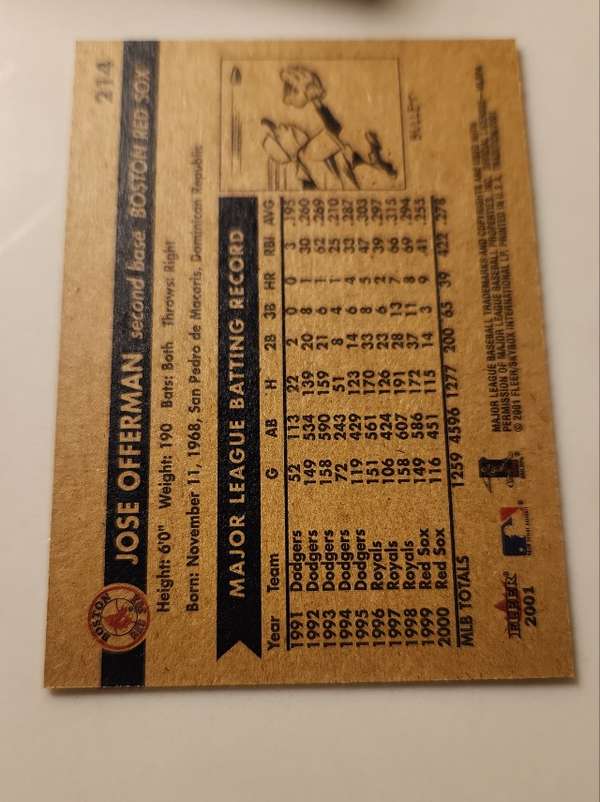 214
JOSE OFFERMAN second base BOSTON RED SOX
BOSTON RED SOX
Height: 6'0" Weight: 190 Bats: Both Throws: Right
Born: November 11, 1968, San Pedro de Macoris, Dominican Republic
MAJOR LEAGUE BATTING RECORD
Year Team G AB H 2B 3B HR RBI AVG
1991 Dodgers 52 113 22 2 0 0 3 .195
1992 Dodgers 149 534 139 20 8 1 30 .260
1993 Dodgers 158 590 159 21 6 1 62 .269
1994 Dodgers 72 243 51 8 4 1 25 .210
1995 Dodgers 119 429 123 14 6 4 33 .287
1996 Royals 151 561 170 33 8 5 47 .303
1997 Royals 106 424 126 23 6 2 39 .297
1998 Royals 158 607 191 28 13 7 66 .315
1999 Red Sox 149 586 172 37 11 8 69 .294
2000 Red Sox 116 451 115 14 3 9 41 .255
MLB TOTALS 1259 4596 1277 200 65 39 422 .278
FLEER
2001
MAJOR LEAGUE BASEBALL TRADEMARKS AND COPYRIGHTS ARE USED WITH
PERMISSION OF MAJOR LEAGUE BASEBALL PROPERTIES, INC.
© 2001 FLEER/SKYBOX INTERNATIONAL LP. PRINTED IN U.S.A.